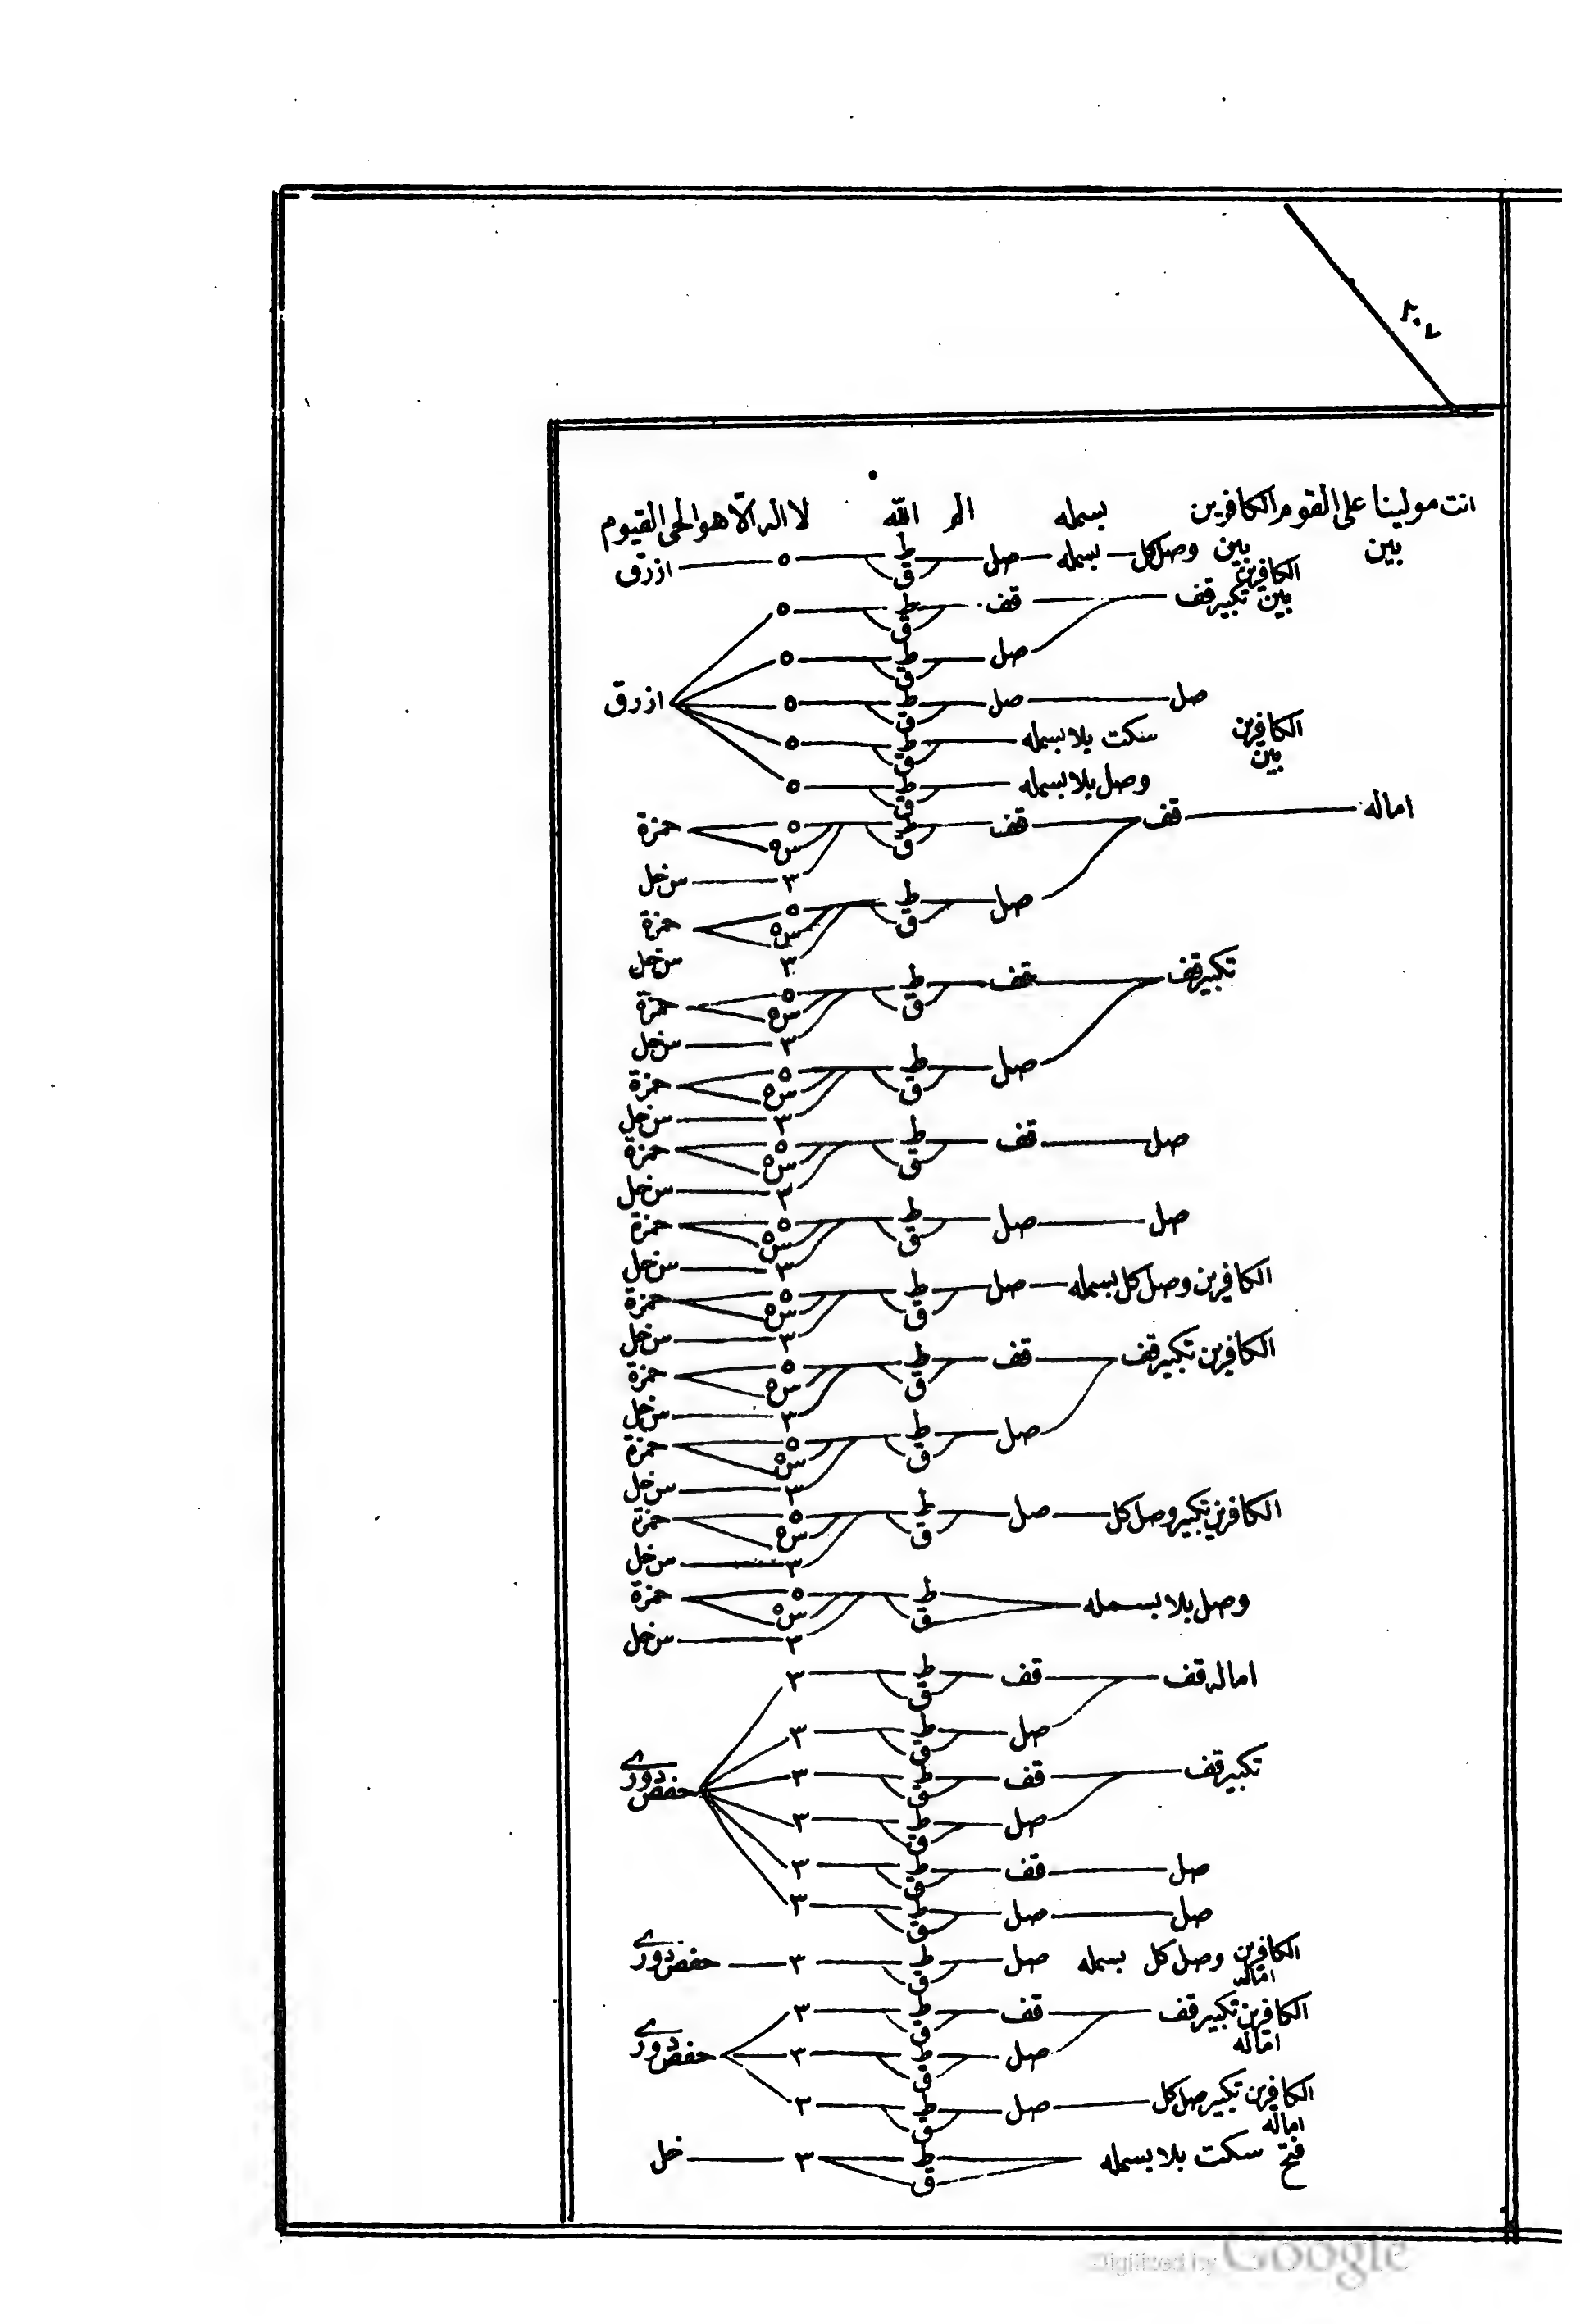 ٢٠٧
انت مولينا على القوم الكافرين بسمله الم الله لا اله الّا هو الحى القيوم
بين بين وصل كل بسمله صل ط ق ٥ ازرق
الكافرين بين تكبير قف قف ط ق ٥
صل ط ق ٥
صل صل ط ق ٥ ازرق
الكافرين بين سكت بلا بسمله ط ق ٥
وصل بلا بسمله ط ق ٥
اماله قف قف ط ق ٥ س٥ حمزة
٣ س خل
صل ط ق ٥ س٥ حمزة
٣ س خل
تكبير قف قف ط ق ٥ س٥ حمزة
٣ س خل
صل ط ق ٥ س٥ حمزة
٣ س خل
صل قف ط ق ٥ س٥ حمزة
٣ س خل
صل صل ط ق ٥ س٥ حمزة
٣ س خل
الكافرين وصل كل بسمله صل ط ق ٥ س٥ حمزة
٣ س خل
الكافرين تكبير قف قف ط ق ٥ س٥ حمزة
٣ س خل
صل ط ق ٥ س٥ حمزة
٣ س خل
الكافرين تكبير وصل كل صل ط ق ٥ س٥ حمزة
٣ س خل
وصل بلا بسمله ط ق ٥ س٥ حمزة
٣ س خل
اماله قف قف ط ق ٣
صل ط ق ٣
تكبير قف قف ط ق ٣ حفص دورے
صل ط ق ٣
صل قف ط ق ٣
صل صل ط ق ٣
الكافرين اماله وصل كل بسمله صل ط ق ٣ حفص دورے
الكافرين اماله تكبير قف قف ط ق ٣
صل ط ق ٣ حفص دورے
الكافرين اماله تكبير صل كل صل ط ق ٣
فتح سكت بلا بسمله ط ق ٣ خل
Digitized by Google